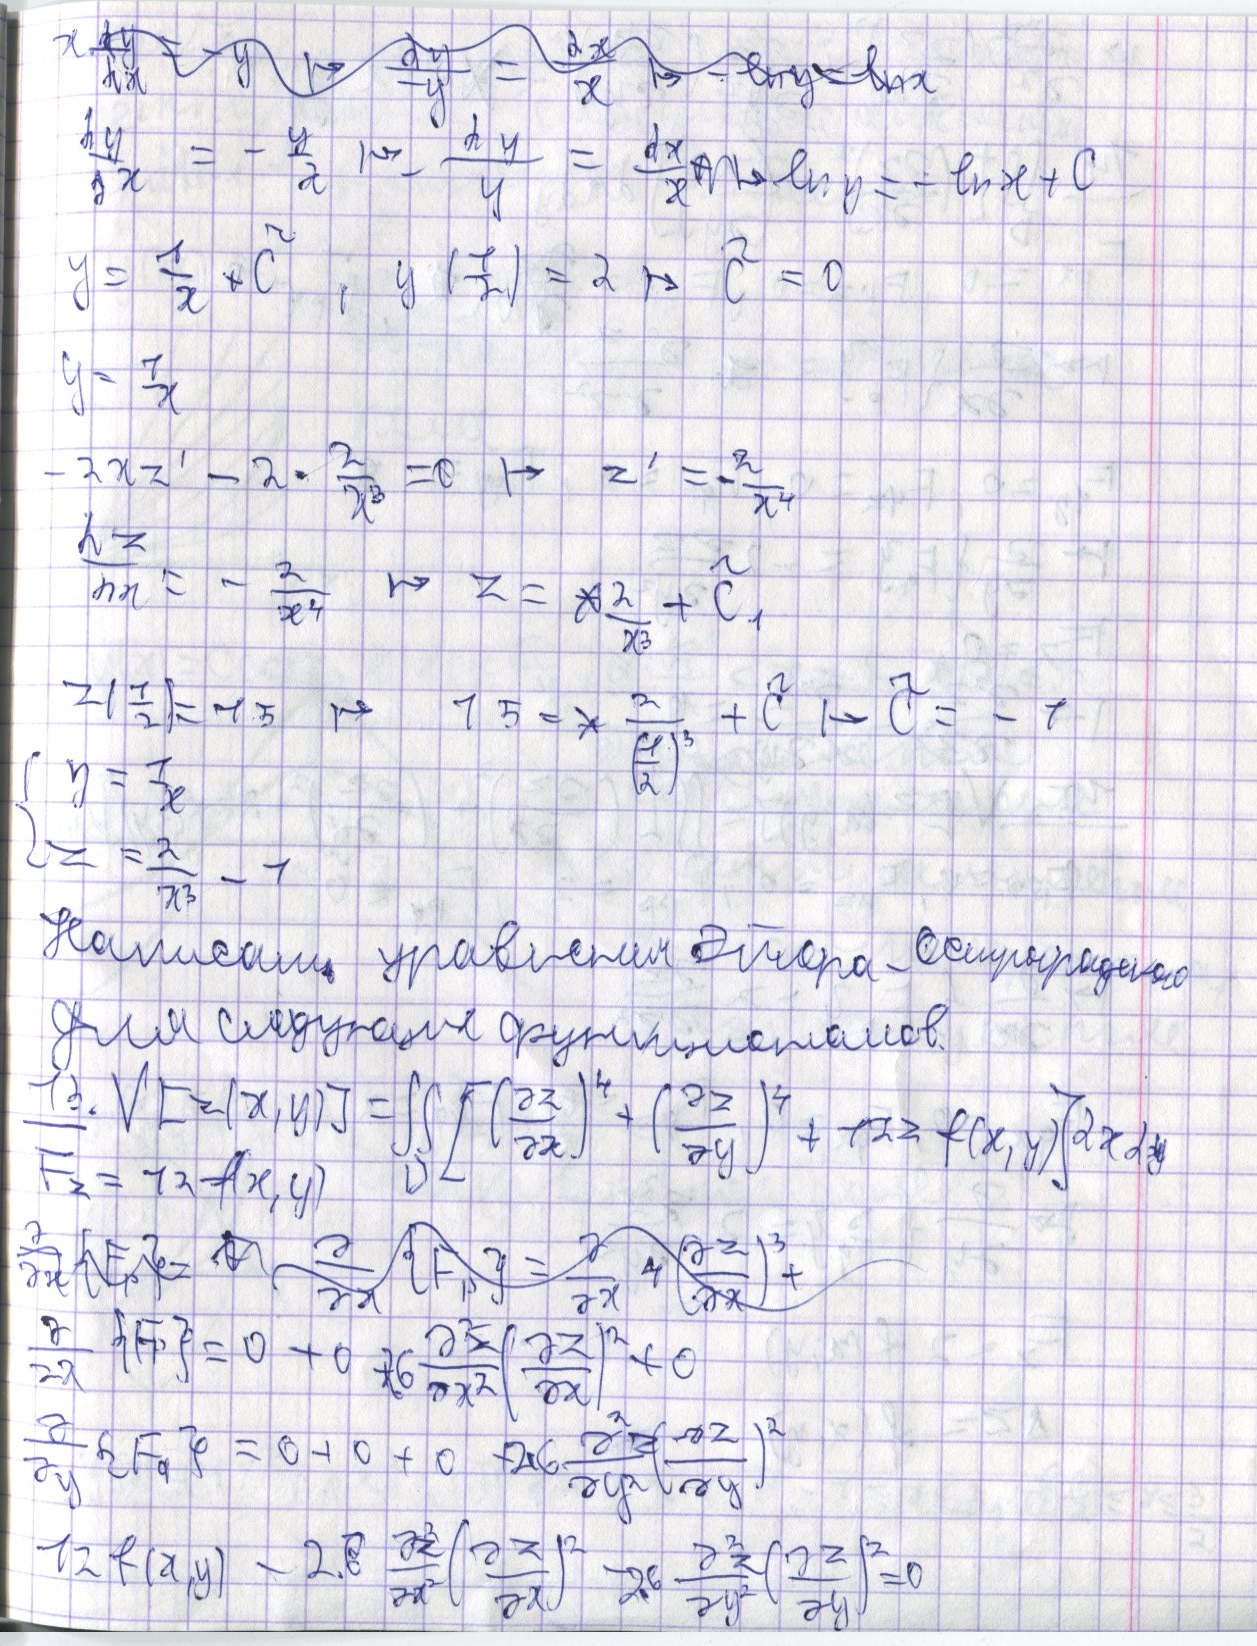 x dy/dx = - y ↦ dy/-y = dx/x ↦ - ln y = ln x
dy/dx = - y/x ↦ - dy/y = dx/x ↦ ln y = - ln x + C
y = 1/x + C̃ , y(1/2) = 2 ↦ C̃ = 0
y = 1/x
- 2xz' - 2 · 2/x³ = 0 ↦ z' = - 2/x⁴
dz/dx = - 2/x⁴ ↦ z = 2/x³ + C̃₁
z(1/2) = 15 ↦ 15 = 2/(1/2)³ + C̃ ↦ C̃ = - 1
{ y = 1/x
z = 2/x³ - 1
Написать уравнения Эйлера-Остроградского
для следующих функционалов.
13. V[z(x,y)] = ∬_D [(∂z/∂x)⁴ + (∂z/∂y)⁴ + 12z f(x,y)] dx dy
F_z = 12 f(x,y)
∂/∂x {F_p} = ∂/∂x {F_p} = ∂/∂x 4 (∂z/∂x)³ +
∂/∂x {F_p} = 0 + 0 + 6 ∂²z/∂x² (∂z/∂x)² + 0
∂/∂y {F_q} = 0 + 0 + 0 + 2·6 ∂²z/∂y² (∂z/∂y)²
12 f(x,y) - 2·6 ∂²z/∂x² (∂z/∂x)² - 2·6 ∂²z/∂y² (∂z/∂y)² = 0